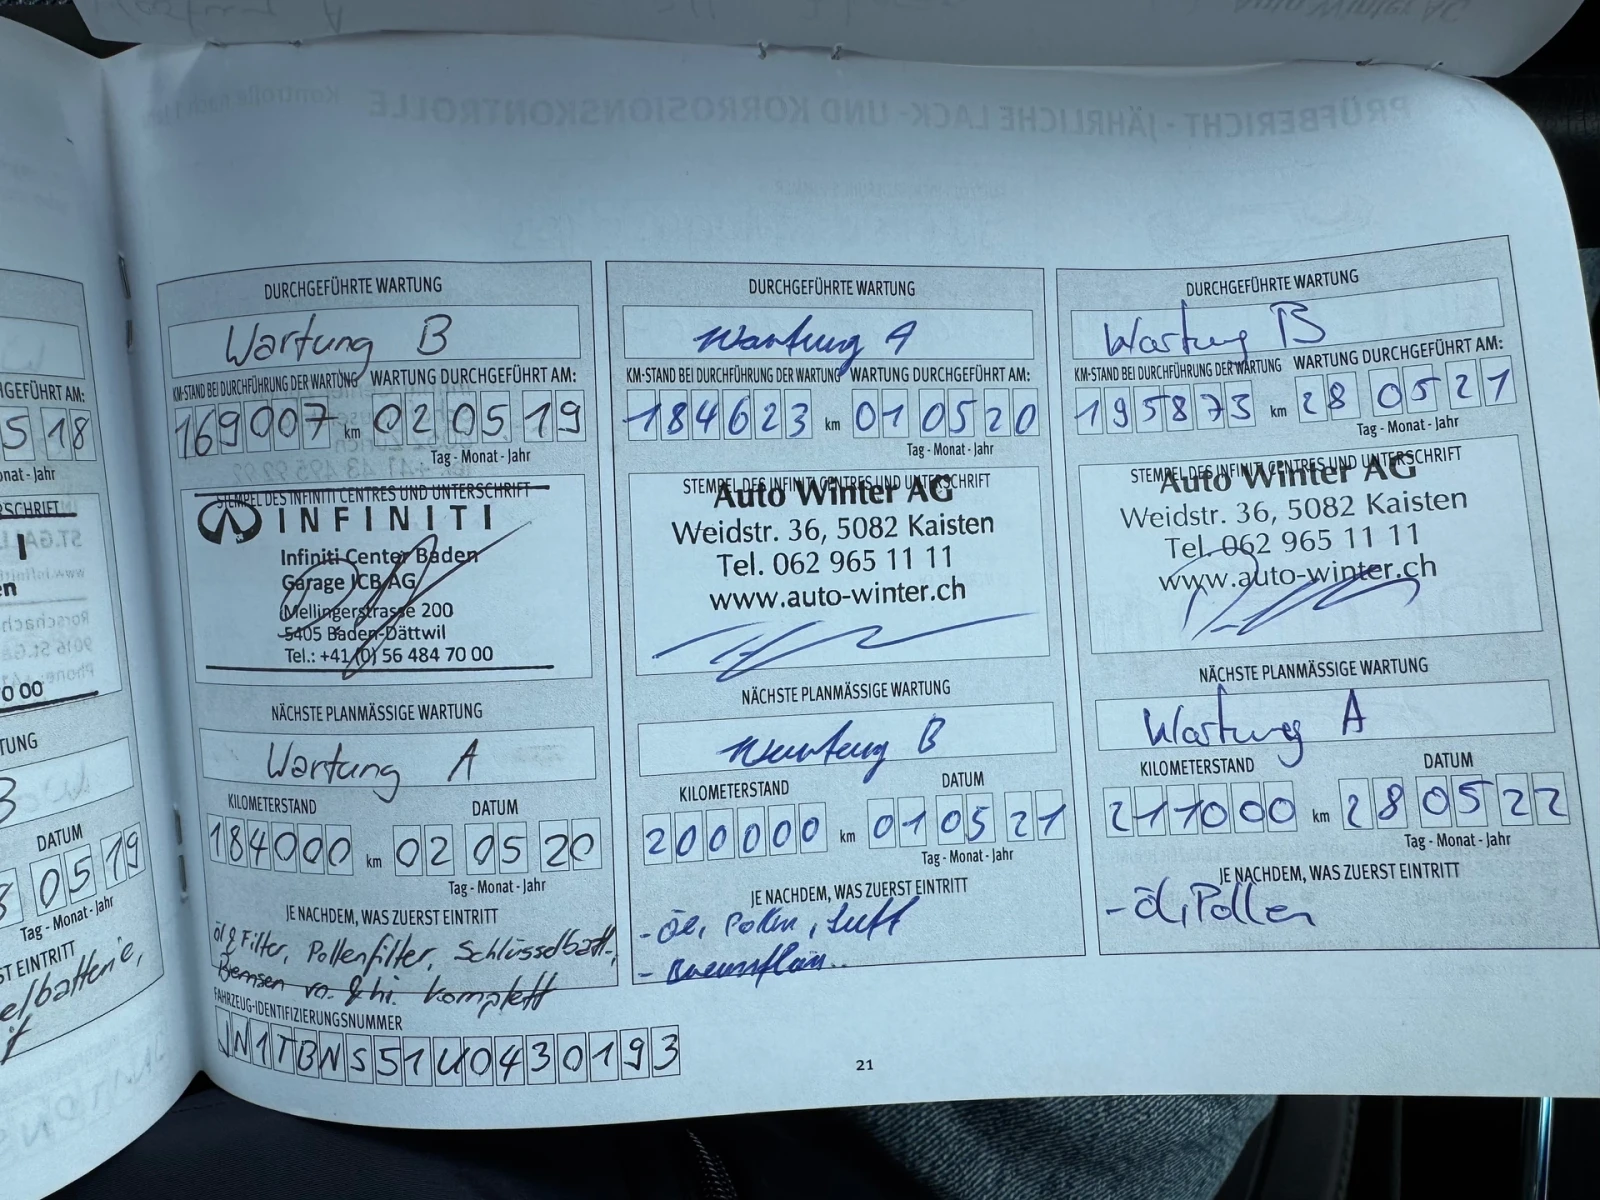 PRÜFBERICHT - JÄHRLICHE LACK- UND KORROSIONSKONTROLLE
DURCHGEFÜHRTE WARTUNG
Wartung B
KM-STAND BEI DURCHFÜHRUNG DER WARTUNG WARTUNG DURCHGEFÜHRT AM:
169007 km 02 05 19
Tag - Monat - Jahr
STEMPEL DES INFINITI CENTRES UND UNTERSCHRIFT
INFINITI
Infiniti Center Baden
Garage JCB AG
Mellingerstrasse 200
5405 Baden-Dättwil
Tel.: +41 (0) 56 484 70 00
NÄCHSTE PLANMÄSSIGE WARTUNG
Wartung A
KILOMETERSTAND DATUM
184000 km 02 05 20
Tag - Monat - Jahr
JE NACHDEM, WAS ZUERST EINTRITT
Öl & Filter, Pollenfilter, Schlüsselbatt.,
Bremsen vo. & hi. komplett
FAHRZEUG-IDENTIFIZIERUNGSNUMMER
JN1TBNS51U0430193
DURCHGEFÜHRTE WARTUNG
Wartung A
KM-STAND BEI DURCHFÜHRUNG DER WARTUNG WARTUNG DURCHGEFÜHRT AM:
184623 km 01 05 20
Tag - Monat - Jahr
STEMPEL DES INFINITI CENTRES UND UNTERSCHRIFT
Auto Winter AG
Weidstr. 36, 5082 Kaisten
Tel. 062 965 11 11
www.auto-winter.ch
NÄCHSTE PLANMÄSSIGE WARTUNG
Wartung B
KILOMETERSTAND DATUM
200000 km 01 05 21
Tag - Monat - Jahr
JE NACHDEM, WAS ZUERST EINTRITT
- Öl, Pollen, Luft
-
DURCHGEFÜHRTE WARTUNG
Wartung B
KM-STAND BEI DURCHFÜHRUNG DER WARTUNG WARTUNG DURCHGEFÜHRT AM:
195873 km 28 05 21
Tag - Monat - Jahr
STEMPEL DES INFINITI CENTRES UND UNTERSCHRIFT
Auto Winter AG
Weidstr. 36, 5082 Kaisten
Tel. 062 965 11 11
www.auto-winter.ch
NÄCHSTE PLANMÄSSIGE WARTUNG
Wartung A
KILOMETERSTAND DATUM
211000 km 28 05 22
Tag - Monat - Jahr
JE NACHDEM, WAS ZUERST EINTRITT
- Öl, Pollen
21